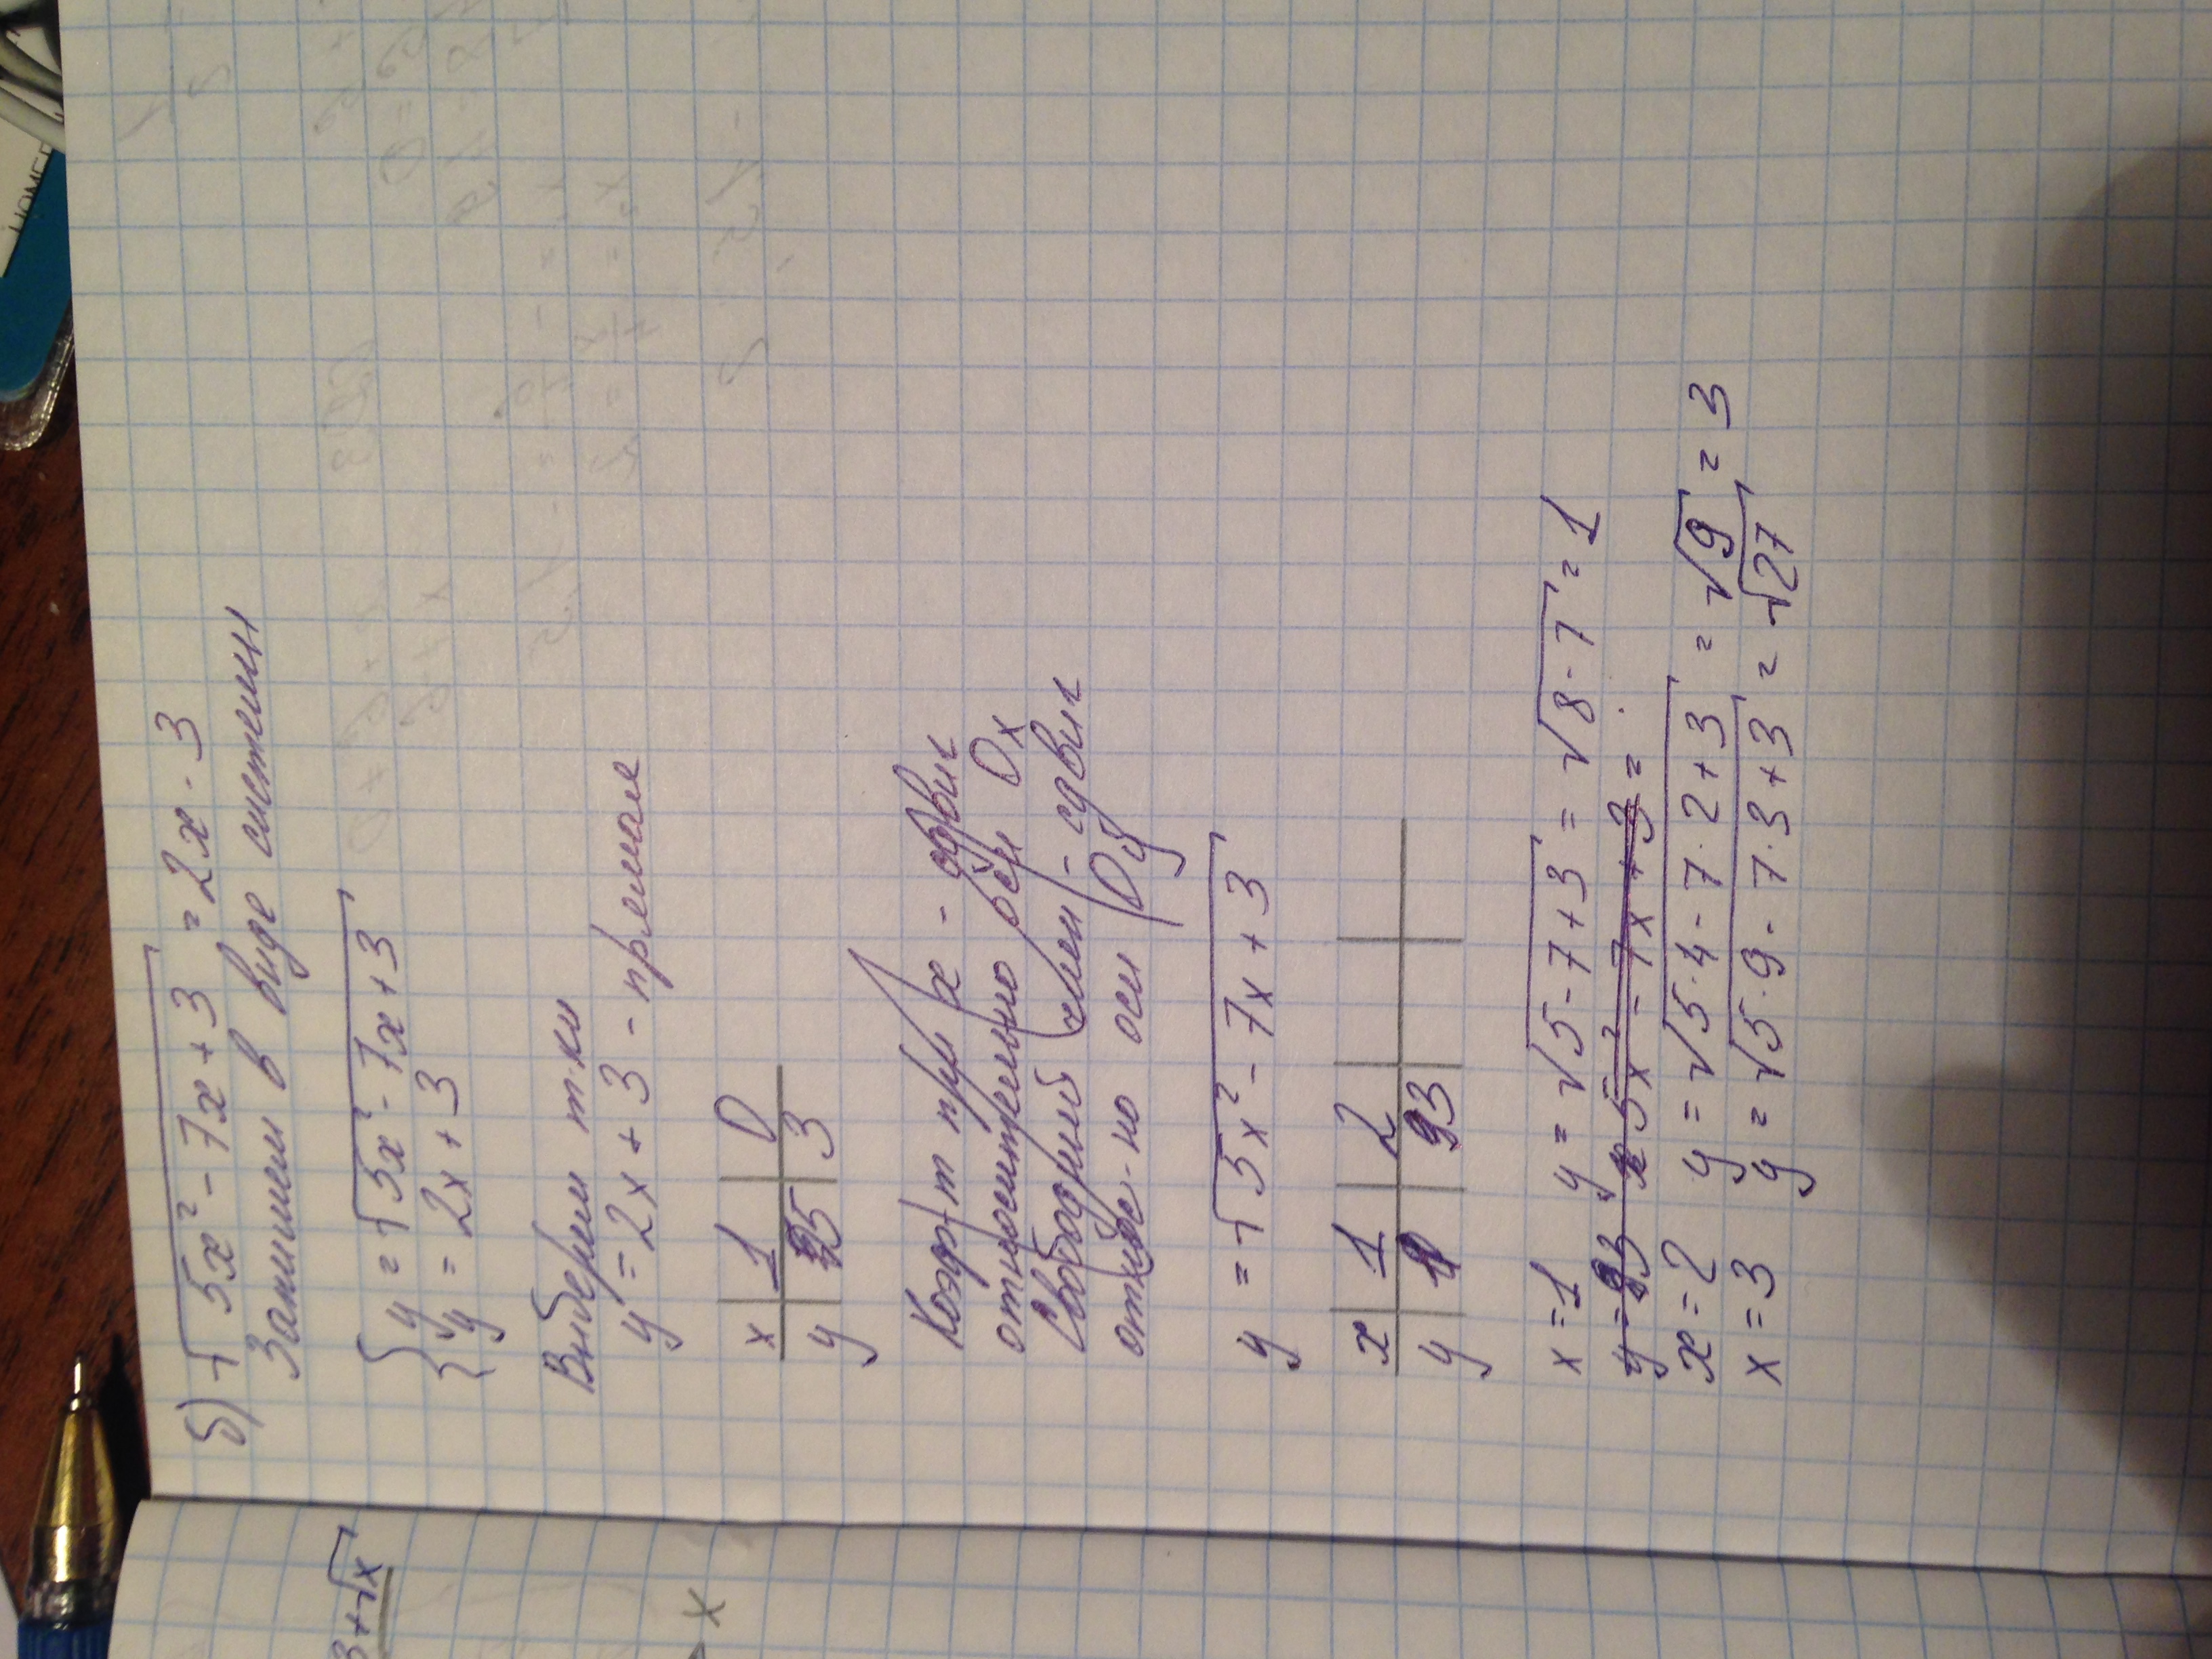 б) √5x² - 7x + 3 = 2x - 3
Запишем в виде системы
{ y = √5x² - 7x + 3
{ y = 2x + 3
Выберем т-ки
y = 2x + 3 - прямая
x 1 0
y 5 3
Коэф-т при x - сдвиг
относительно оси Ox
Свободный член - сдвиг
отн-но оси Oy
y = √5x² - 7x + 3
x 1 2
y 1 3
x = 1 y = √5 - 7 + 3 = √8 - 7 = 1
x = 2 y = √5·4 - 7·2 + 3 = √9 = 3
x = 3 y = √5·9 - 7·3 + 3 = √27
3+√x
x